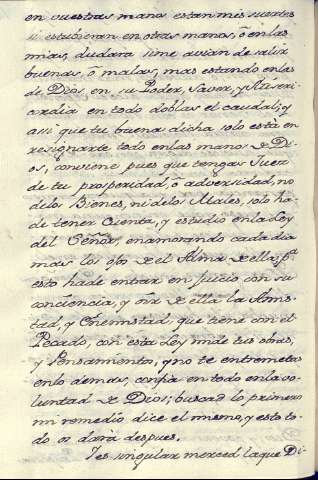 en vuestras manos estan mis suertes
si estubieran en otras manos, ò en las
mias, dudara si me avian de salir
buenas, ò malas, mas estando en las
de Dios, en su Poder, Saver, y Miseri
cordia en todo doblas el caudal; y
asi que tu buena dicha solo està en
resignarte todo en las manos de Di-
os; conviene pues que tengas
de tu prosperidad, ò adversidad, no
de los Bienes, ni de los Males, solo ha
de tener Cuenta, y estudio en la Ley
del Señor, enamorando cada dia
mas los ojos de el Alma de ella; pª
esto hade entrar en juicio con su
conciencia, y oir de ella la Amis-
tad, y Enemistad, que tiene con el
Pecado, con esta Ley mide tus obras,
y Pensamientos, y no te entremetas
en lo demas, confia en todo en la vo-
luntad de Dios; buscad lo primero
mi remedio dice el mismo, y esto to-
do os darà despues.
Y es singular merced la que Di-